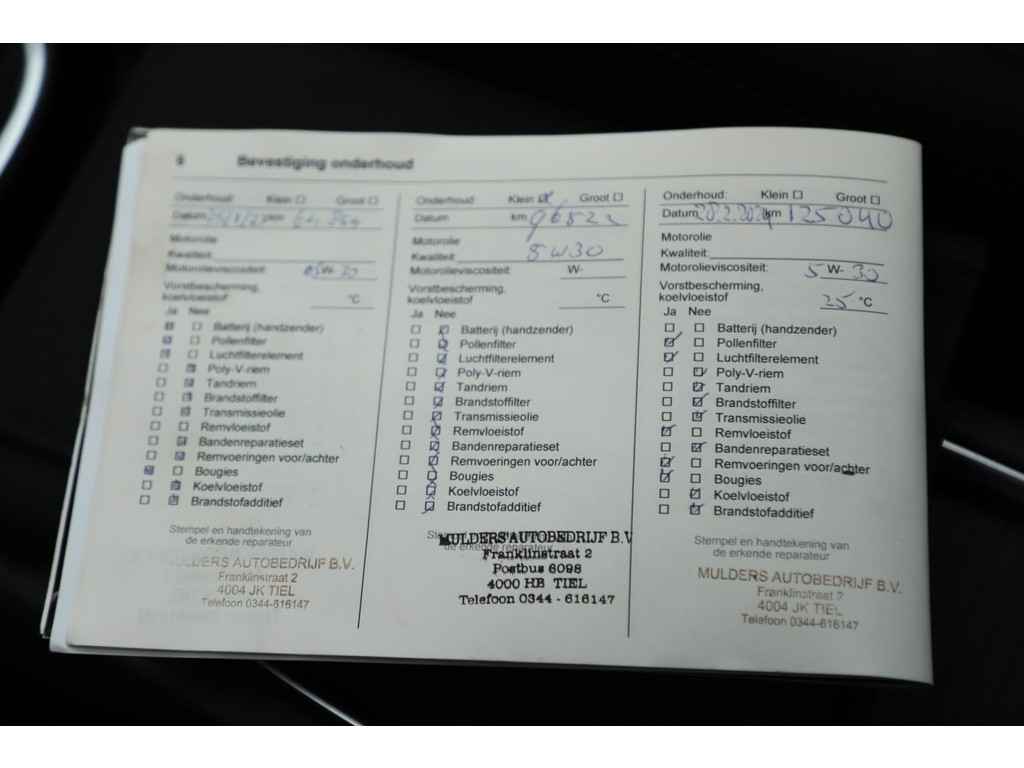 6 Bevestiging onderhoud
Onderhoud: Klein Groot
Datum km
Motorolie
Kwaliteit:
Motorolieviscositeit: W- 30
Vorstbescherming,
koelvloeistof °C
Ja Nee
Batterij (handzender)
Pollenfilter
Luchtfilterelement
Poly-V-riem
Tandriem
Brandstoffilter
Transmissieolie
Remvloeistof
Bandenreparatieset
Remvoeringen voor/achter
Bougies
Koelvloeistof
Brandstofadditief
Stempel en handtekening van
de erkende reparateur
MULDERS AUTOBEDRIJF B.V.
Franklinstraat 2
4004 JK TIEL
Telefoon 0344-616147
Onderhoud: Klein Groot
Datum km 96522
Motorolie
Kwaliteit: 5W30
Motorolieviscositeit: W-
Vorstbescherming,
koelvloeistof °C
Ja Nee
Batterij (handzender)
Pollenfilter
Luchtfilterelement
Poly-V-riem
Tandriem
Brandstoffilter
Transmissieolie
Remvloeistof
Bandenreparatieset
Remvoeringen voor/achter
Bougies
Koelvloeistof
Brandstofadditief
de erkende reparateur
MULDERS AUTOBEDRIJF B.V
Franklinstraat 2
Postbus 6098
4000 HB TIEL
Telefoon 0344 - 616147
Onderhoud: Klein Groot
Datum 20.2.2024 km 125040
Motorolie
Kwaliteit:
Motorolieviscositeit: 5 W- 30
Vorstbescherming,
koelvloeistof 25 °C
Ja Nee
Batterij (handzender)
Pollenfilter
Luchtfilterelement
Poly-V-riem
Tandriem
Brandstoffilter
Transmissieolie
Remvloeistof
Bandenreparatieset
Remvoeringen voor/achter
Bougies
Koelvloeistof
Brandstofadditief
Stempel en handtekening van
de erkende reparateur
MULDERS AUTOBEDRIJF B.V.
Franklinstraat 2
4004 JK TIEL
Telefoon 0344-616147